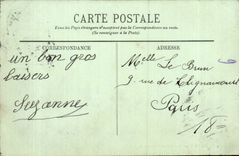 CARTE POSTALE
Tous les Pays étrangers n'acceptent pas la Correspondance au recto.
(Se renseigner à la Poste)
CORRESPONDANCE
ADRESSE
un bon gros
baisers
Suzanne
Melle Le Brun
9. rue de Clignancourt
Paris
18e